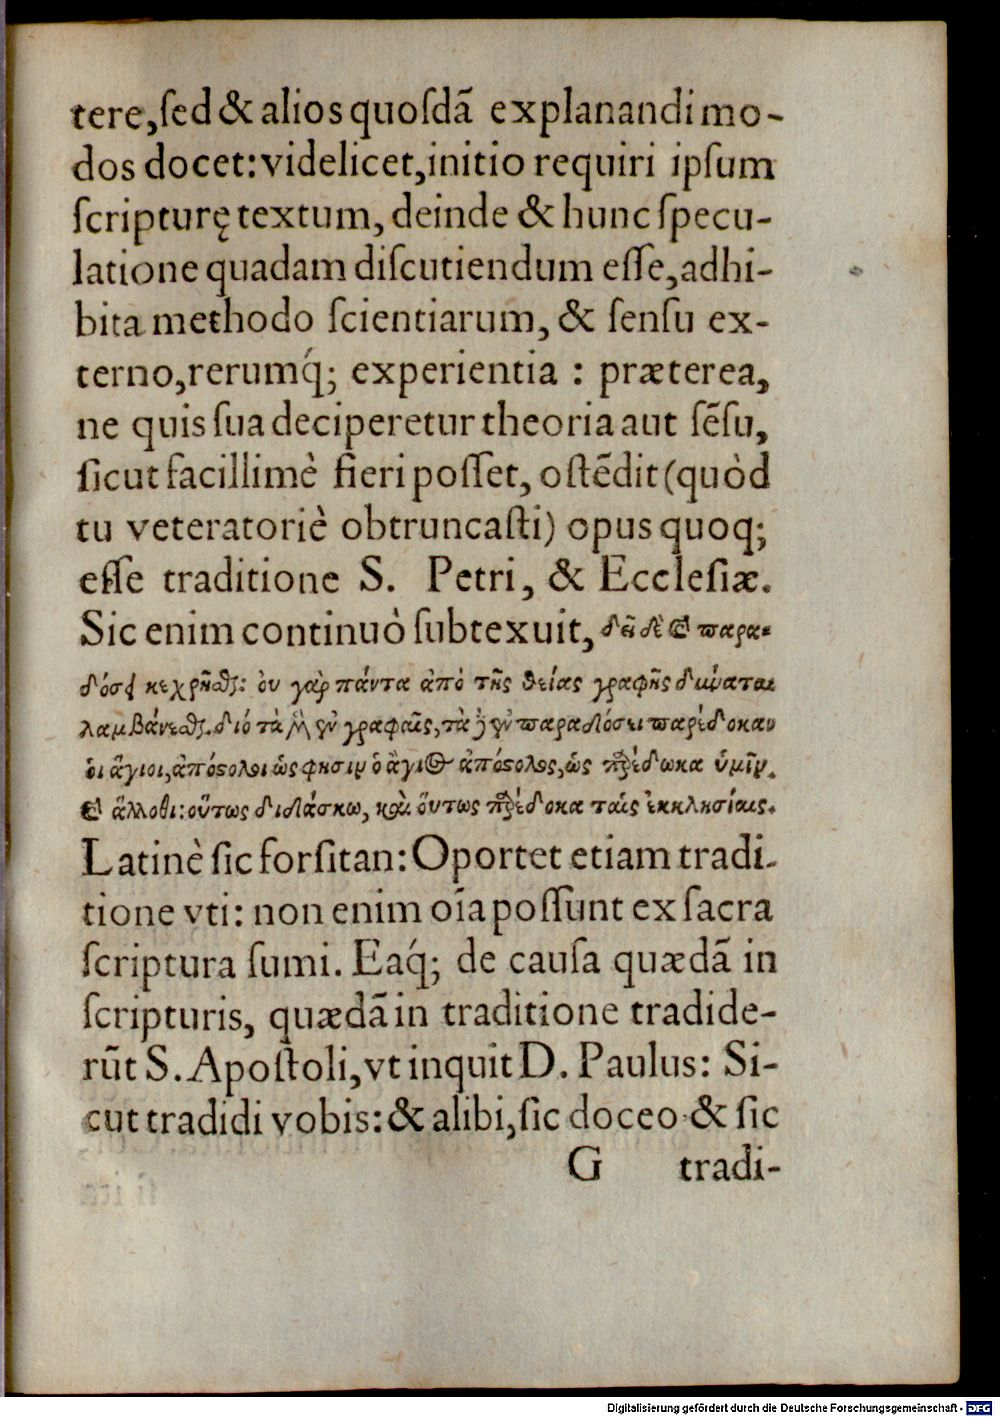 tere,ſed & alios quoſdã explanandi mo-
dos docet: videlicet,initio requiri ipſum
ſcripturę textum, deinde & hunc ſpecu-
latione quadam diſcutiendum eſſe,adhi-
bita methodo ſcientiarum, & ſenſu ex-
terno,rerumq́; experientia : præterea,
ne quis ſua deciperetur theoria aut ſẽſu,
ſicut facillimè fieri poſſet, oſtẽdit (quòd
tu veteratoriè obtruncaſti) opus quoq;
eſſe traditione S. Petri, & Eccleſiæ.
Sic enim continuò ſubtexuit, δεῖ δὲ ϗ παρα-
δόσει κεχρῆσθαι: ὀυ γὰρ πάντα ἀπὸ τῆς θείας γραφῆς δύναται
λαμβάνεσθαι. διό τὰ μὲν ἐν γραφαῖς, τὰ δὲ ἐν παραδόσει παρέδοκαν
ὁι ἅγιοι, ἀπόςολοι ὡς φησιν ὁ ἅγιος ἀπόςολος, ὡς παρέδωκα ὑμῖν.
ϗ ἄλλοθι: οὕτως διδάσκω, καὶ ὅυτως παρέδοκα ταῖς ἐκκλησίαις.
Latinè ſic forſitan: Oportet etiam tradi-
tione vti: non enim oĩa poſſunt ex ſacra
ſcriptura ſumi. Eaq́; de cauſa quædã in
ſcripturis, quædã in traditione tradide-
rũt S. Apoſtoli, vt inquit D. Paulus: Si-
cut tradidi vobis: & alibi, ſic doceo & ſic
G tradi-
Digitalisierung gefördert durch die Deutsche Forschungsgemeinschaft - DFG